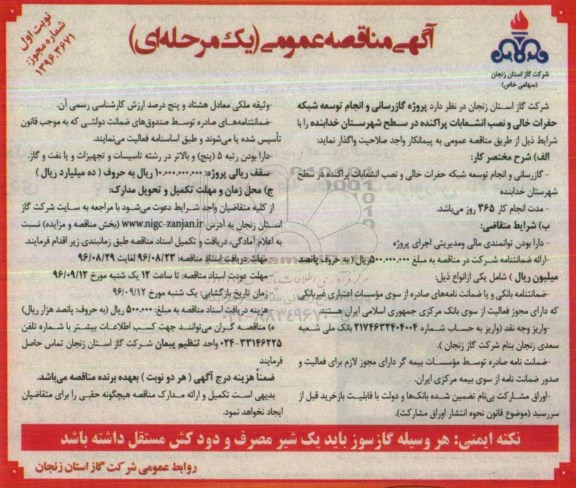 نوبت اول
شماره مجوز:
۱۳۹۶.۳۶۷۱
آگهی مناقصه عمومی (یک مرحله‌ای)
شرکت گاز استان زنجان
(سهامی خاص)
شرکت گاز استان زنجان در نظر دارد پروژه گازرسانی و انجام توسعه شبکه
حفرات خالی و نصب انشعابات پراکنده در سطح شهرستان خدابنده را با
شرایط ذیل از طریق مناقصه عمومی به پیمانکار واجد صلاحیت واگذار نماید:
الف) شرح مختصر کار:
- گازرسانی و انجام توسعه شبکه حفرات خالی و نصب انشعابات پراکنده در سطح
شهرستان خدابنده
- مدت انجام کار ۳۶۵ روز می‌باشد.
ب) شرایط متقاضی:
- دارا بودن توانمندی مالی ومدیریتی اجرای پروژه
-ارائه ضمانتنامه شرکت در مناقصه به مبلغ ۵۰۰.۰۰۰.۰۰۰ ریال( به حروف پانصد
میلیون ریال ) شامل یکی ازانواع ذیل:
-ضمانتنامه بانکی و یا ضمانت نامه‌های صادره از سوی مؤسسات اعتباری غیربانکی
که دارای مجوز فعالیت از سوی بانک مرکزی جمهوری اسلامی ایران هستند.
-واریز وجه نقد (واریز به حساب شماره ۲۱۷۴۶۳۲۴۰۴۰۰۴ بانک ملی شعبه
سعدی زنجان بنام شرکت گاز زنجان ).
-ضمانت نامه صادره توسط مؤسسات بیمه گر دارای مجوز لازم برای فعالیت و
صدور ضمانت نامه از سوی بیمه مرکزی ایران.
-اوراق مشارکت بی‌نام تضمین شده بانک‌ها و دولت با قابلیت بازخرید قبل از
سررسید (موضوع قانون نحوه انتشار اوراق مشارکت).
-وثیقه ملکی معادل هشتاد و پنج درصد ارزش کارشناسی رسمی آن.
-ضمانتنامه‌های صادره توسط صندوق‌های ضمانت دولتی که به موجب قانون
تأسیس شده یا می‌شوند و طبق اساسنامه فعالیت می‌نمایند.
-دارا بودن رتبه ۵ (پنج) و بالاتر در رشته تاسیسات و تجهیزات و یا نفت و گاز.
-سقف ریالی پروژه: ۱۰.۰۰۰.۰۰۰.۰۰۰ ریال به حروف ( ده میلیارد ریال )
ج) محل زمان و مهلت تکمیل و تحویل مدارک:
از کلیه متقاضیان واجد شرایط دعوت می‌شود با مراجعه به سایت شرکت گاز
استان زنجان به آدرس www.nigc-zanjan.ir (بخش مناقصه و مزایده) نسبت
به اعلام آمادگی، دریافت و تکمیل اسناد مناقصه طبق زمانبندی زیر اقدام فرمایند.
-مهلت دریافت اسناد مناقصه: ۹۶/۰۸/۲۳ لغایت ۹۶/۰۸/۲۹
-مهلت عودت اسناد مناقصه: تا ساعت ۱۲ یک شنبه مورخ ۹۶/۰۹/۱۲
-زمان تاریخ بازگشایی: یک شنبه مورخ ۹۶/۰۹/۱۲
-هزینه دریافت اسناد مناقصه به مبلغ: ۵۰۰.۰۰۰ ریال (به حروف: پانصد هزار ریال)
٥) مناقصه گران می‌توانند جهت کسب اطلاعات بیشتر با شماره تلفن
۰۲۴-۳۳۱۴۶۲۲۵ واحد تنظیم پیمان شرکت گاز استان زنجان تماس حاصل
فرمایند
ضمناً هزینه درج آگهی ( هر دو نوبت ) بعهده برنده مناقصه می‌باشد.
بدیهی است تکمیل و ارائه مدارک مناقصه هیچگونه حقی را برای متقاضیان
ایجاد نخواهد نمود.
نکته ایمنی: هر وسیله گازسوز باید یک شیر مصرف و دود کش مستقل داشته باشد
روابط عمومی شرکت گاز استان زنجان